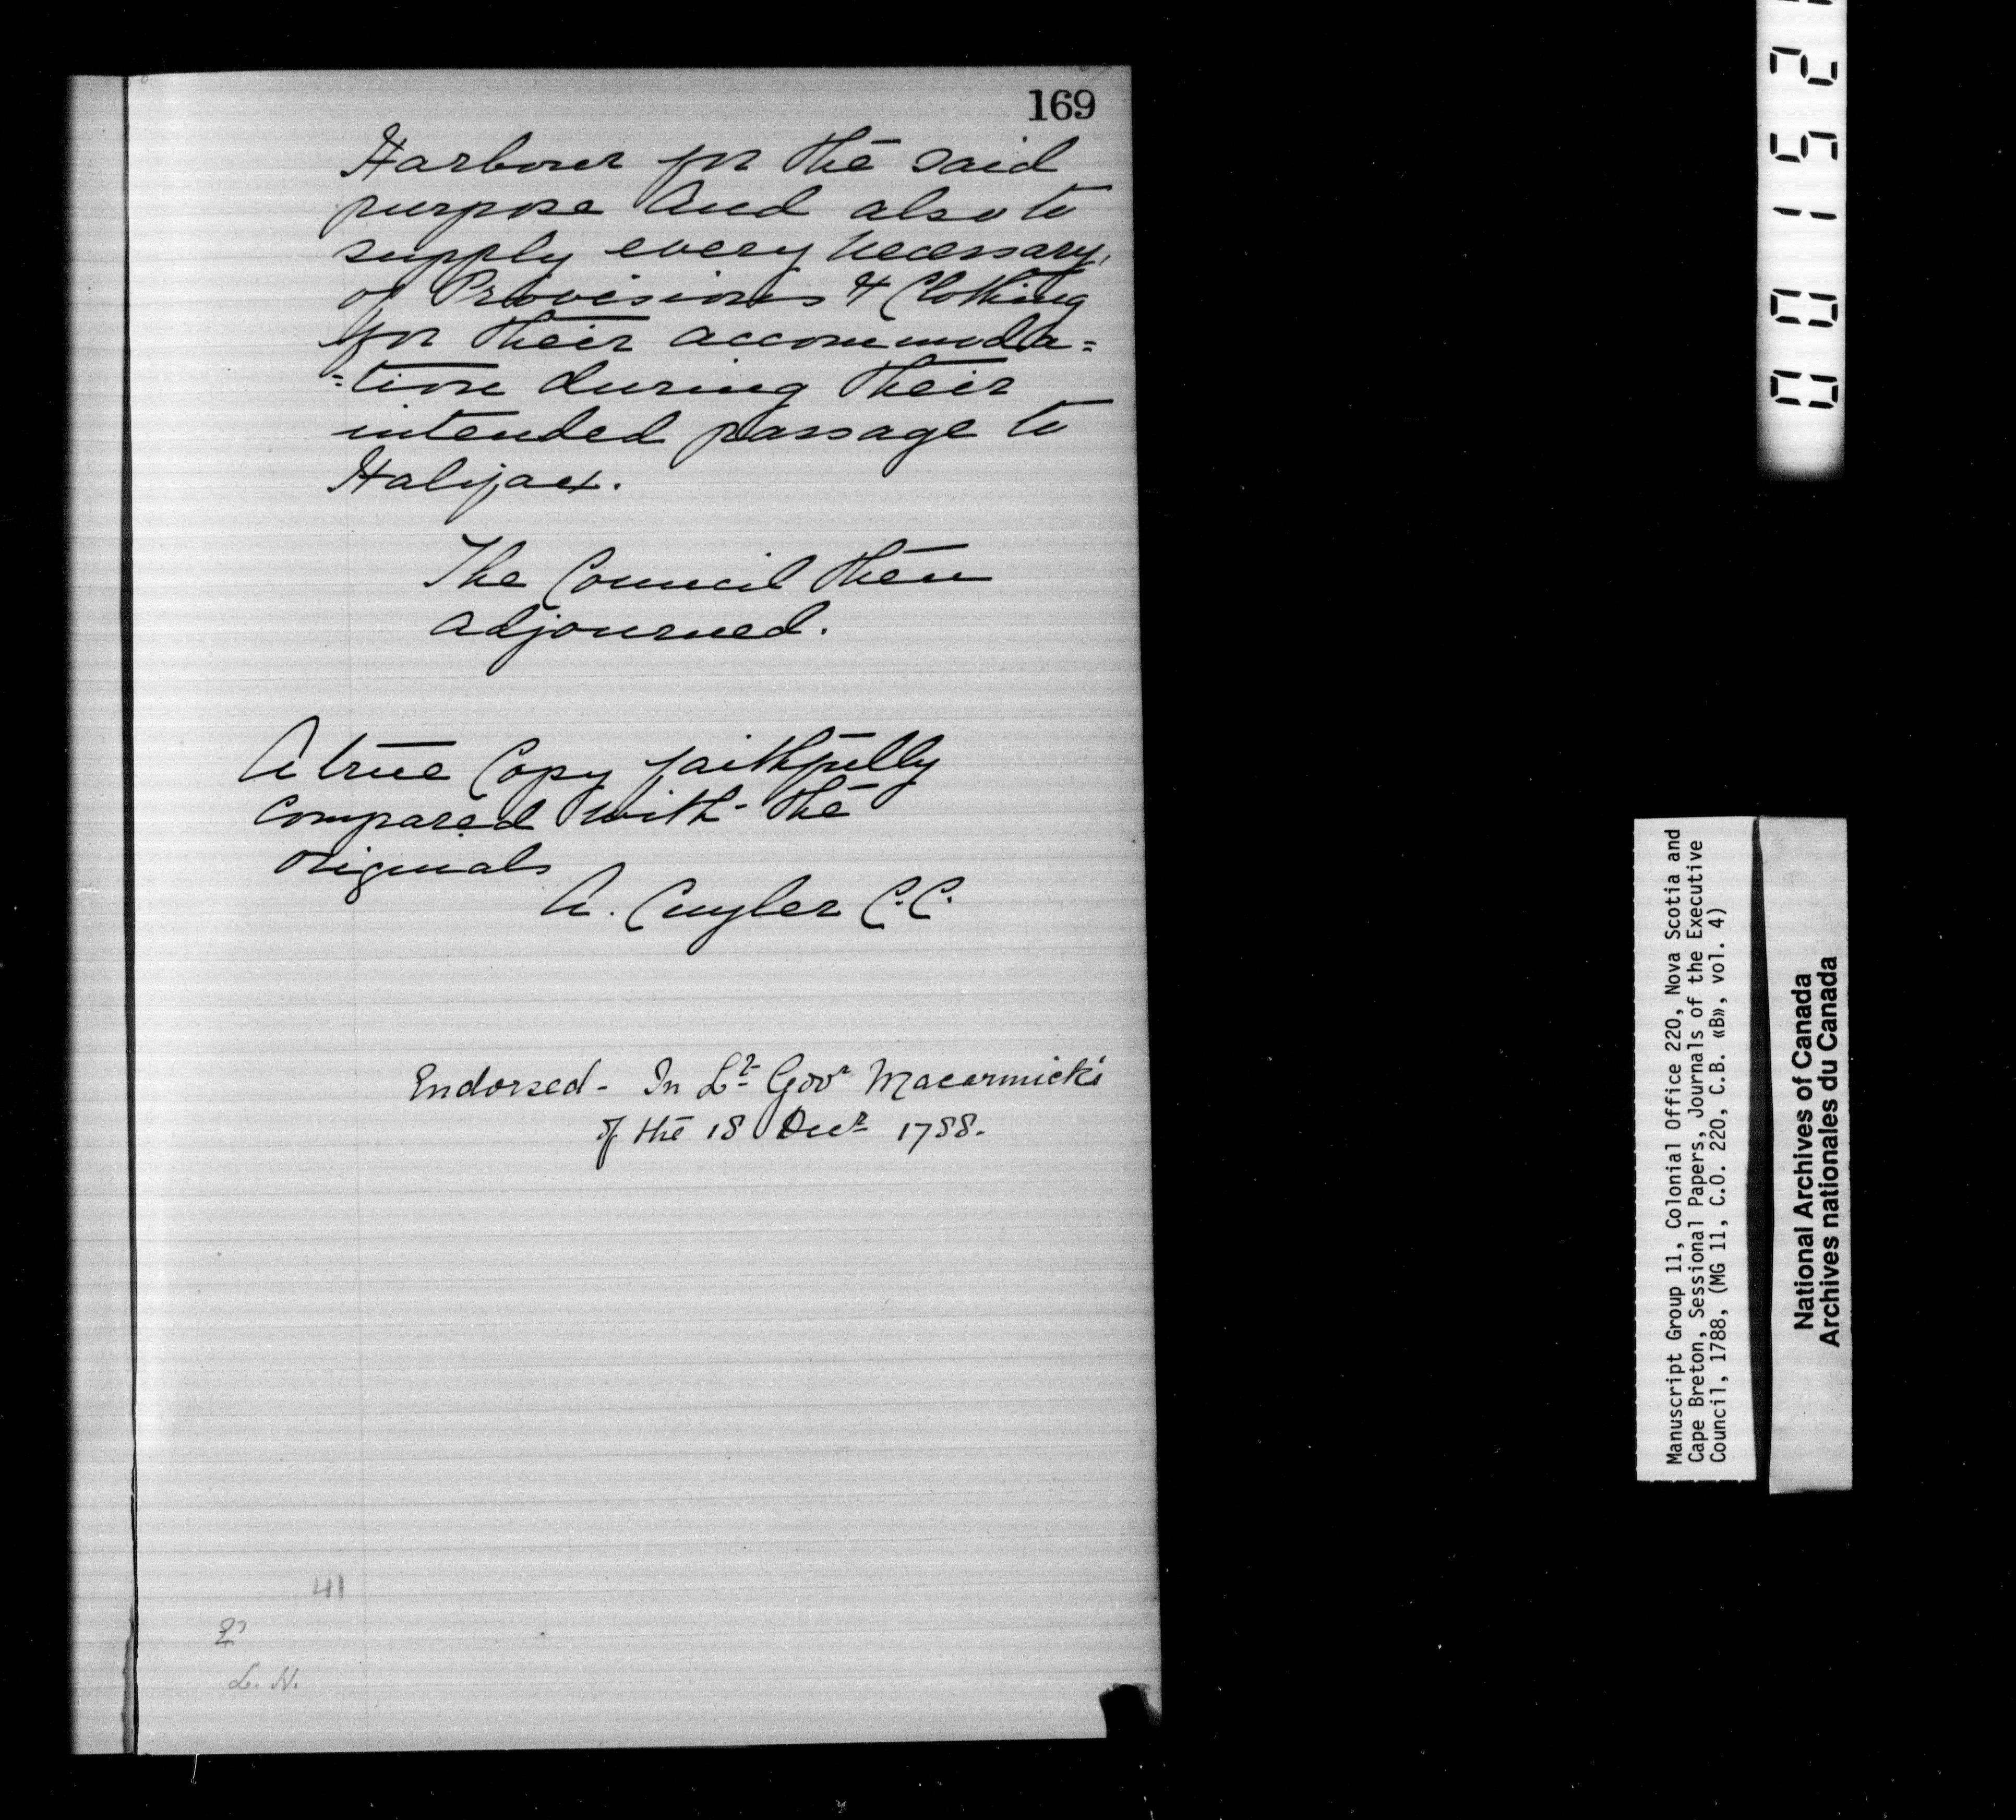 169
Harbour for the said
purpose And also to
supply every necessary,
of Provisions & Clothing
for their accommoda=
=tion during their
intended passage to
Halifax.
The Council then
adjourned.
A true Copy faithfully
Compared with the
originals
A. Cuyler C.C.
Endorsed - In Lt Govr Macarmick's
of the 18 Decr 1788.
41
L. H.
0 0 1 5 2
Manuscript Group 11, Colonial Office 220, Nova Scotia and
Cape Breton, Sessional Papers, Journals of the Executive
Council, 1788, (MG 11, C.O. 220, C.B. «B», vol. 4)
National Archives of Canada
Archives nationales du Canada